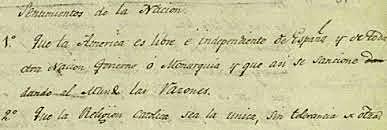 Sentimientos de la Nacion.
1.º Que la America es libre é independiente de España y de toda
otra Nacion, Govierno ó Monarquia y que asi se sancione
dando al Mundo las Razones.
2.º Que la Religion Catolica, sea la unica, sin tolerancia de otra.